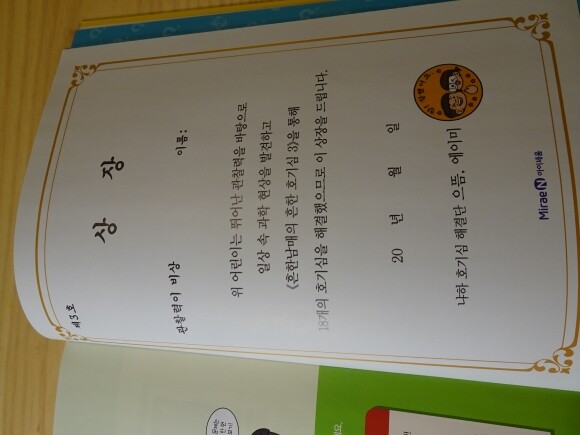 제3호
상 장
관찰력이 비상
이름:
위 어린이는 뛰어난 관찰력을 바탕으로
일상 속 과학 현상을 발견하고
《흔한남매의 흔한 호기심 3》을 통해
18개의 호기심을 해결했으므로 이 상장을 드립니다.
20 년 월 일
냐하 호기심 해결단 으뜸, 에이미
Mirae N 아이세움